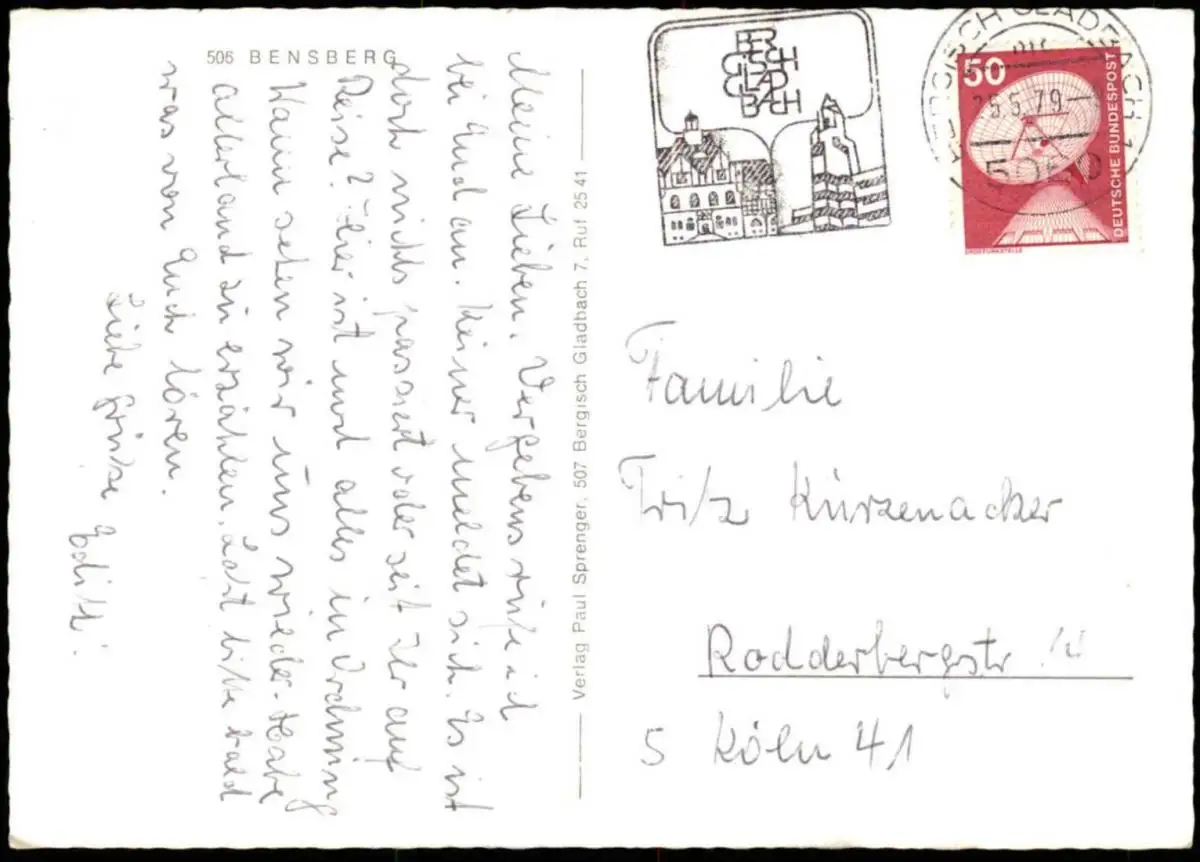 506 BENSBERG
Meine Lieben. Vergebens rufe ich
bei Euch an. Keiner meldet sich. Es ist
doch nichts passiert oder seit Ihr auf
Reise? Hier ist und alles in Ordnung
Wann sehen wir uns wieder. Habe
allerhand zu erzählen. Laßt bitte bald
was von Euch hören.
Liebe Grüße
Edith.
Verlag Paul Sprenger, 507 Bergisch Gladbach 7, Ruf 25 41
BER
GISCH
GLAD
BACH
BERGISCH GLADBACH 1
25.5.79
5060
50
DEUTSCHE BUNDESPOST
ERDEFUNKSTELLE
Familie
Fritz Kürzenacker
Rodderbergstr
5 Köln 41